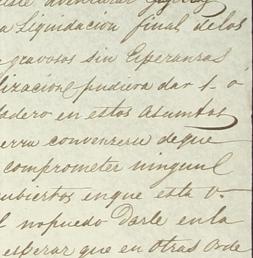 a Liquidacion final delos
gravosos sin Esperansas
lizacion pudiera dar 1. o
dadero en estos Asuntos
erra convenserse deque
comprometer ningun
ubiertos enque esta V.
l nopuedo Darle enla
esperar que en Otras Orde